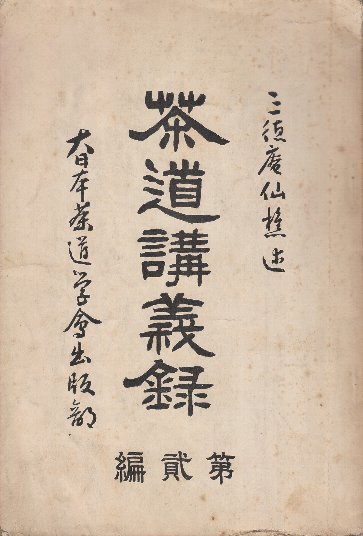 三徳庵仙樵述
茶道講義録
第貳編
大日本茶道学会出版部